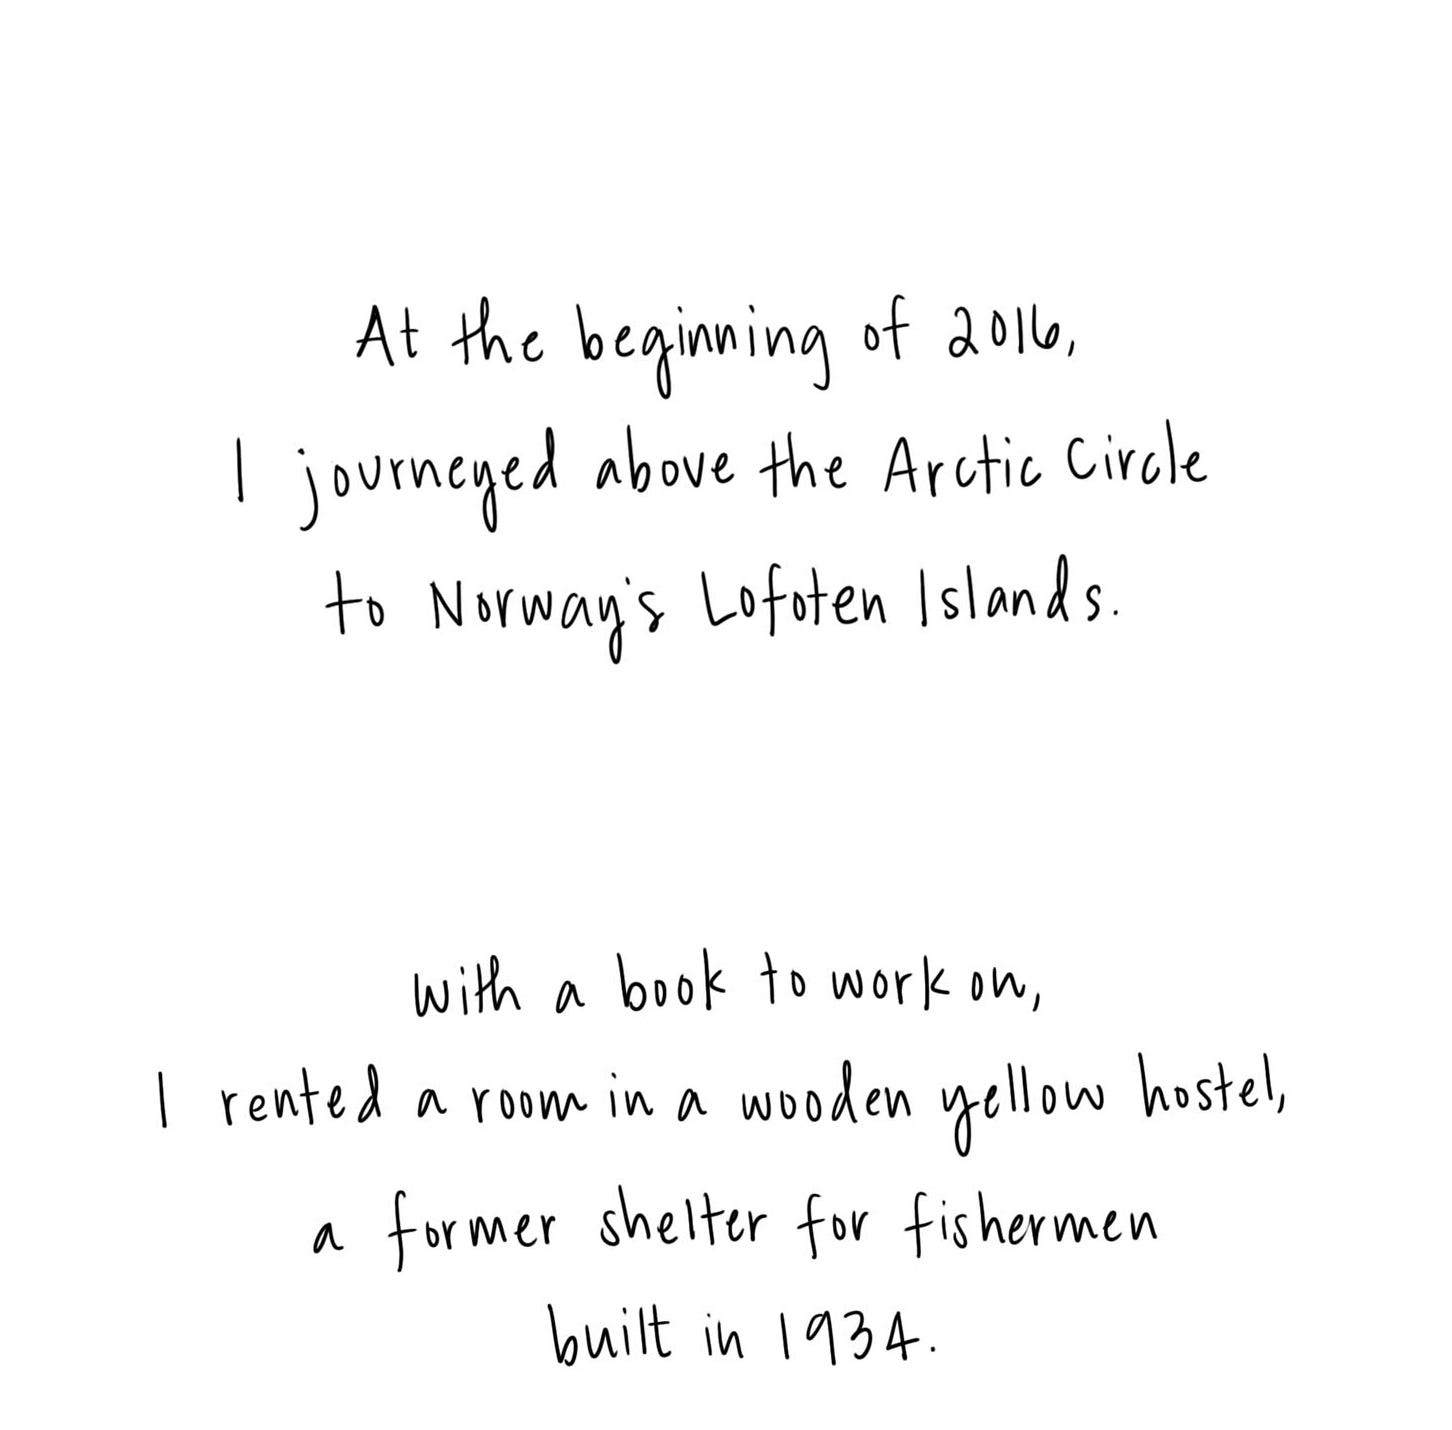 At the beginning of 2016,
I journeyed above the Arctic Circle
to Norway's Lofoten Islands.
With a book to work on,
I rented a room in a wooden yellow hostel,
a former shelter for fishermen
built in 1934.